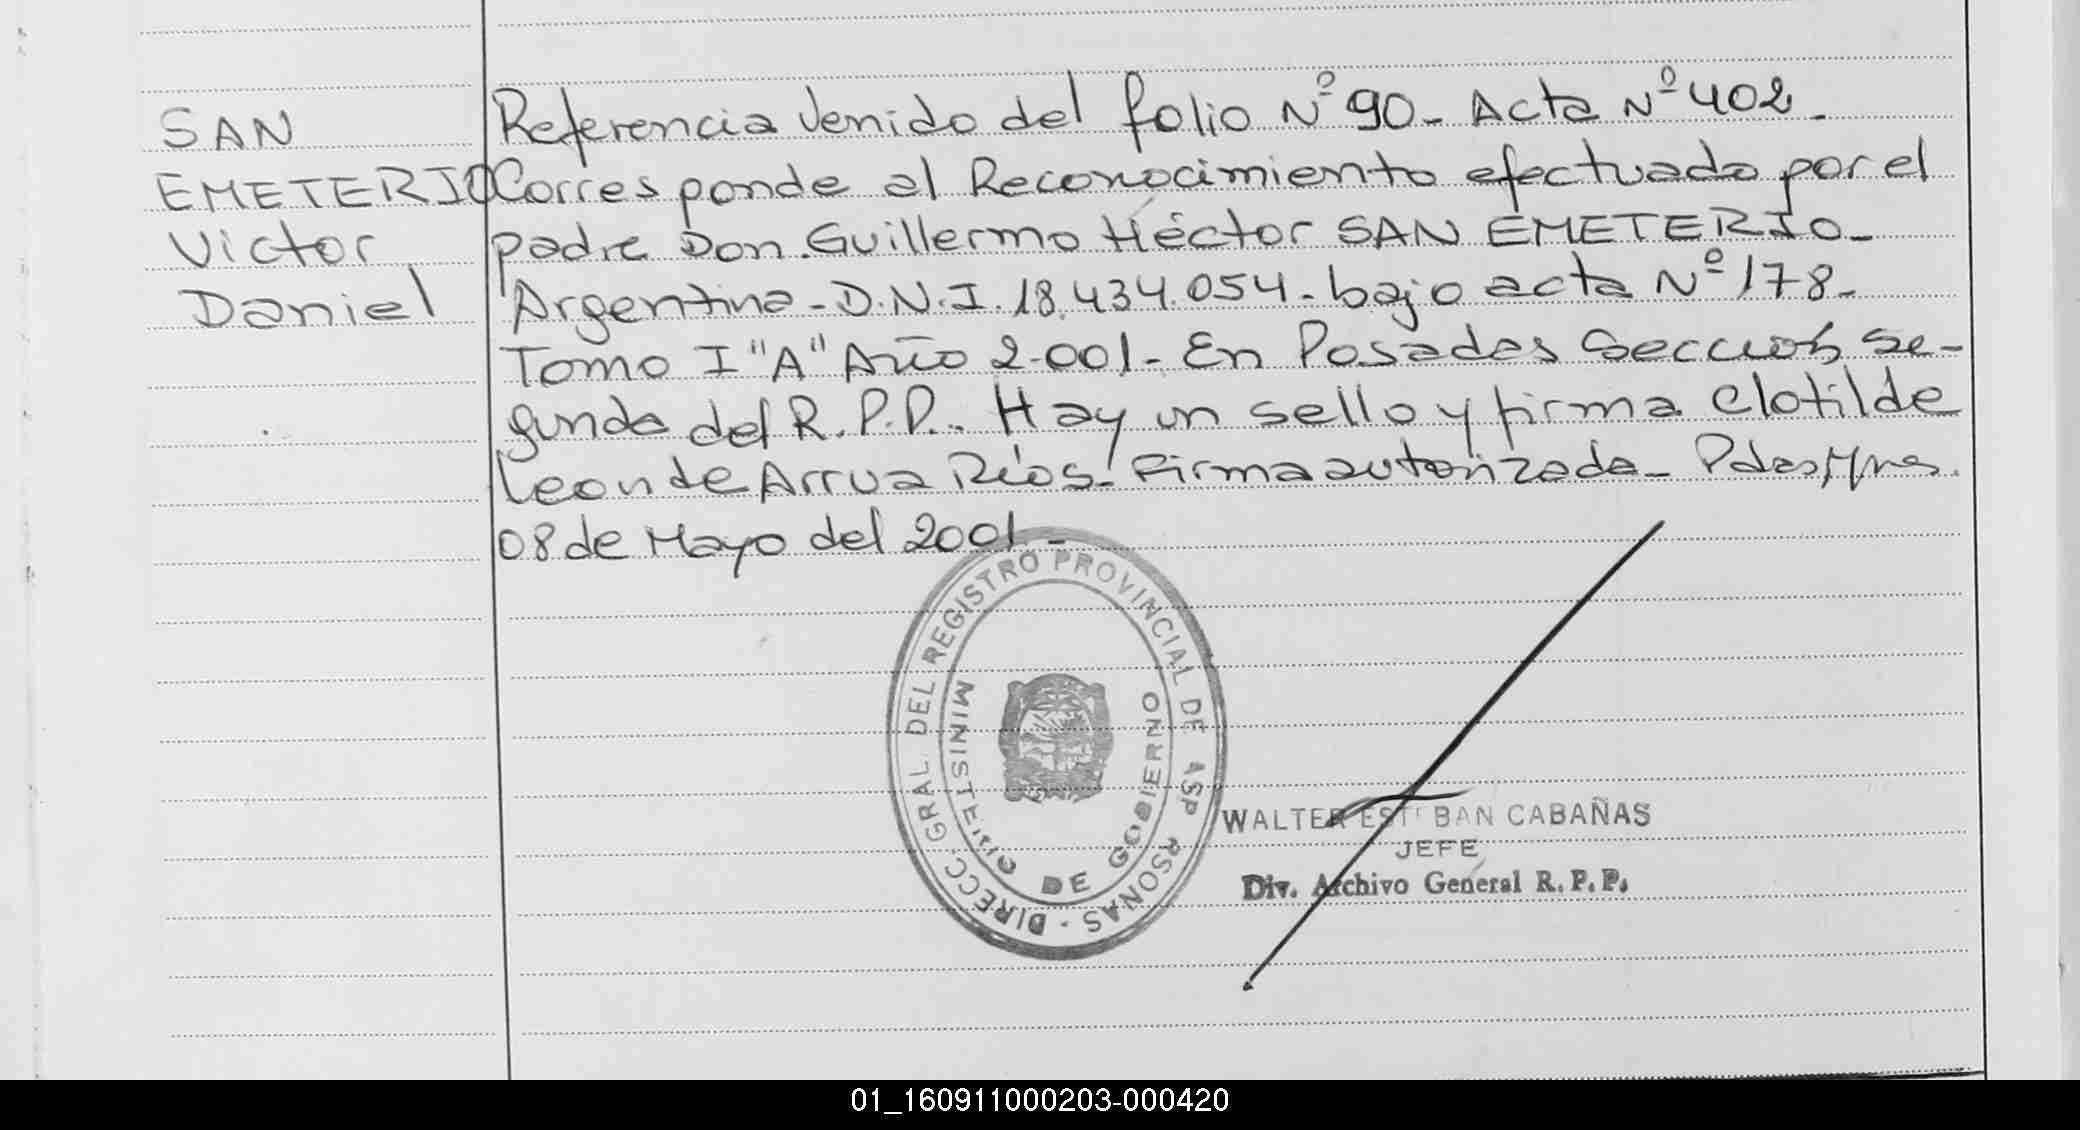 SAN
EMETERIO
Victor
Daniel
Referencia Venido del folio Nº 90- Acta Nº 402-
Corresponde al Reconocimiento efectuado por el
padre Don. Guillermo Héctor SAN EMETERIO-
Argentino-D.N.I. 18.434.054- bajo acta Nº 178-
Tomo I "A" Año 2.001- En Posadas Sección Se-
gunda del R.P.P.. Hay un sello y firma Clotilde
Leon de Arrua Ríos- Firma autorizada-
08 de Mayo del 2001-
DIRECC. GRAL DEL REGISTRO PROVINCIAL DE ASP RSONAS -
MINISTERIO DE GOBIERNO
WALTER ESTEBAN CABAÑAS
JEFE
Div. Archivo General R.P.P.
01_160911000203-000420